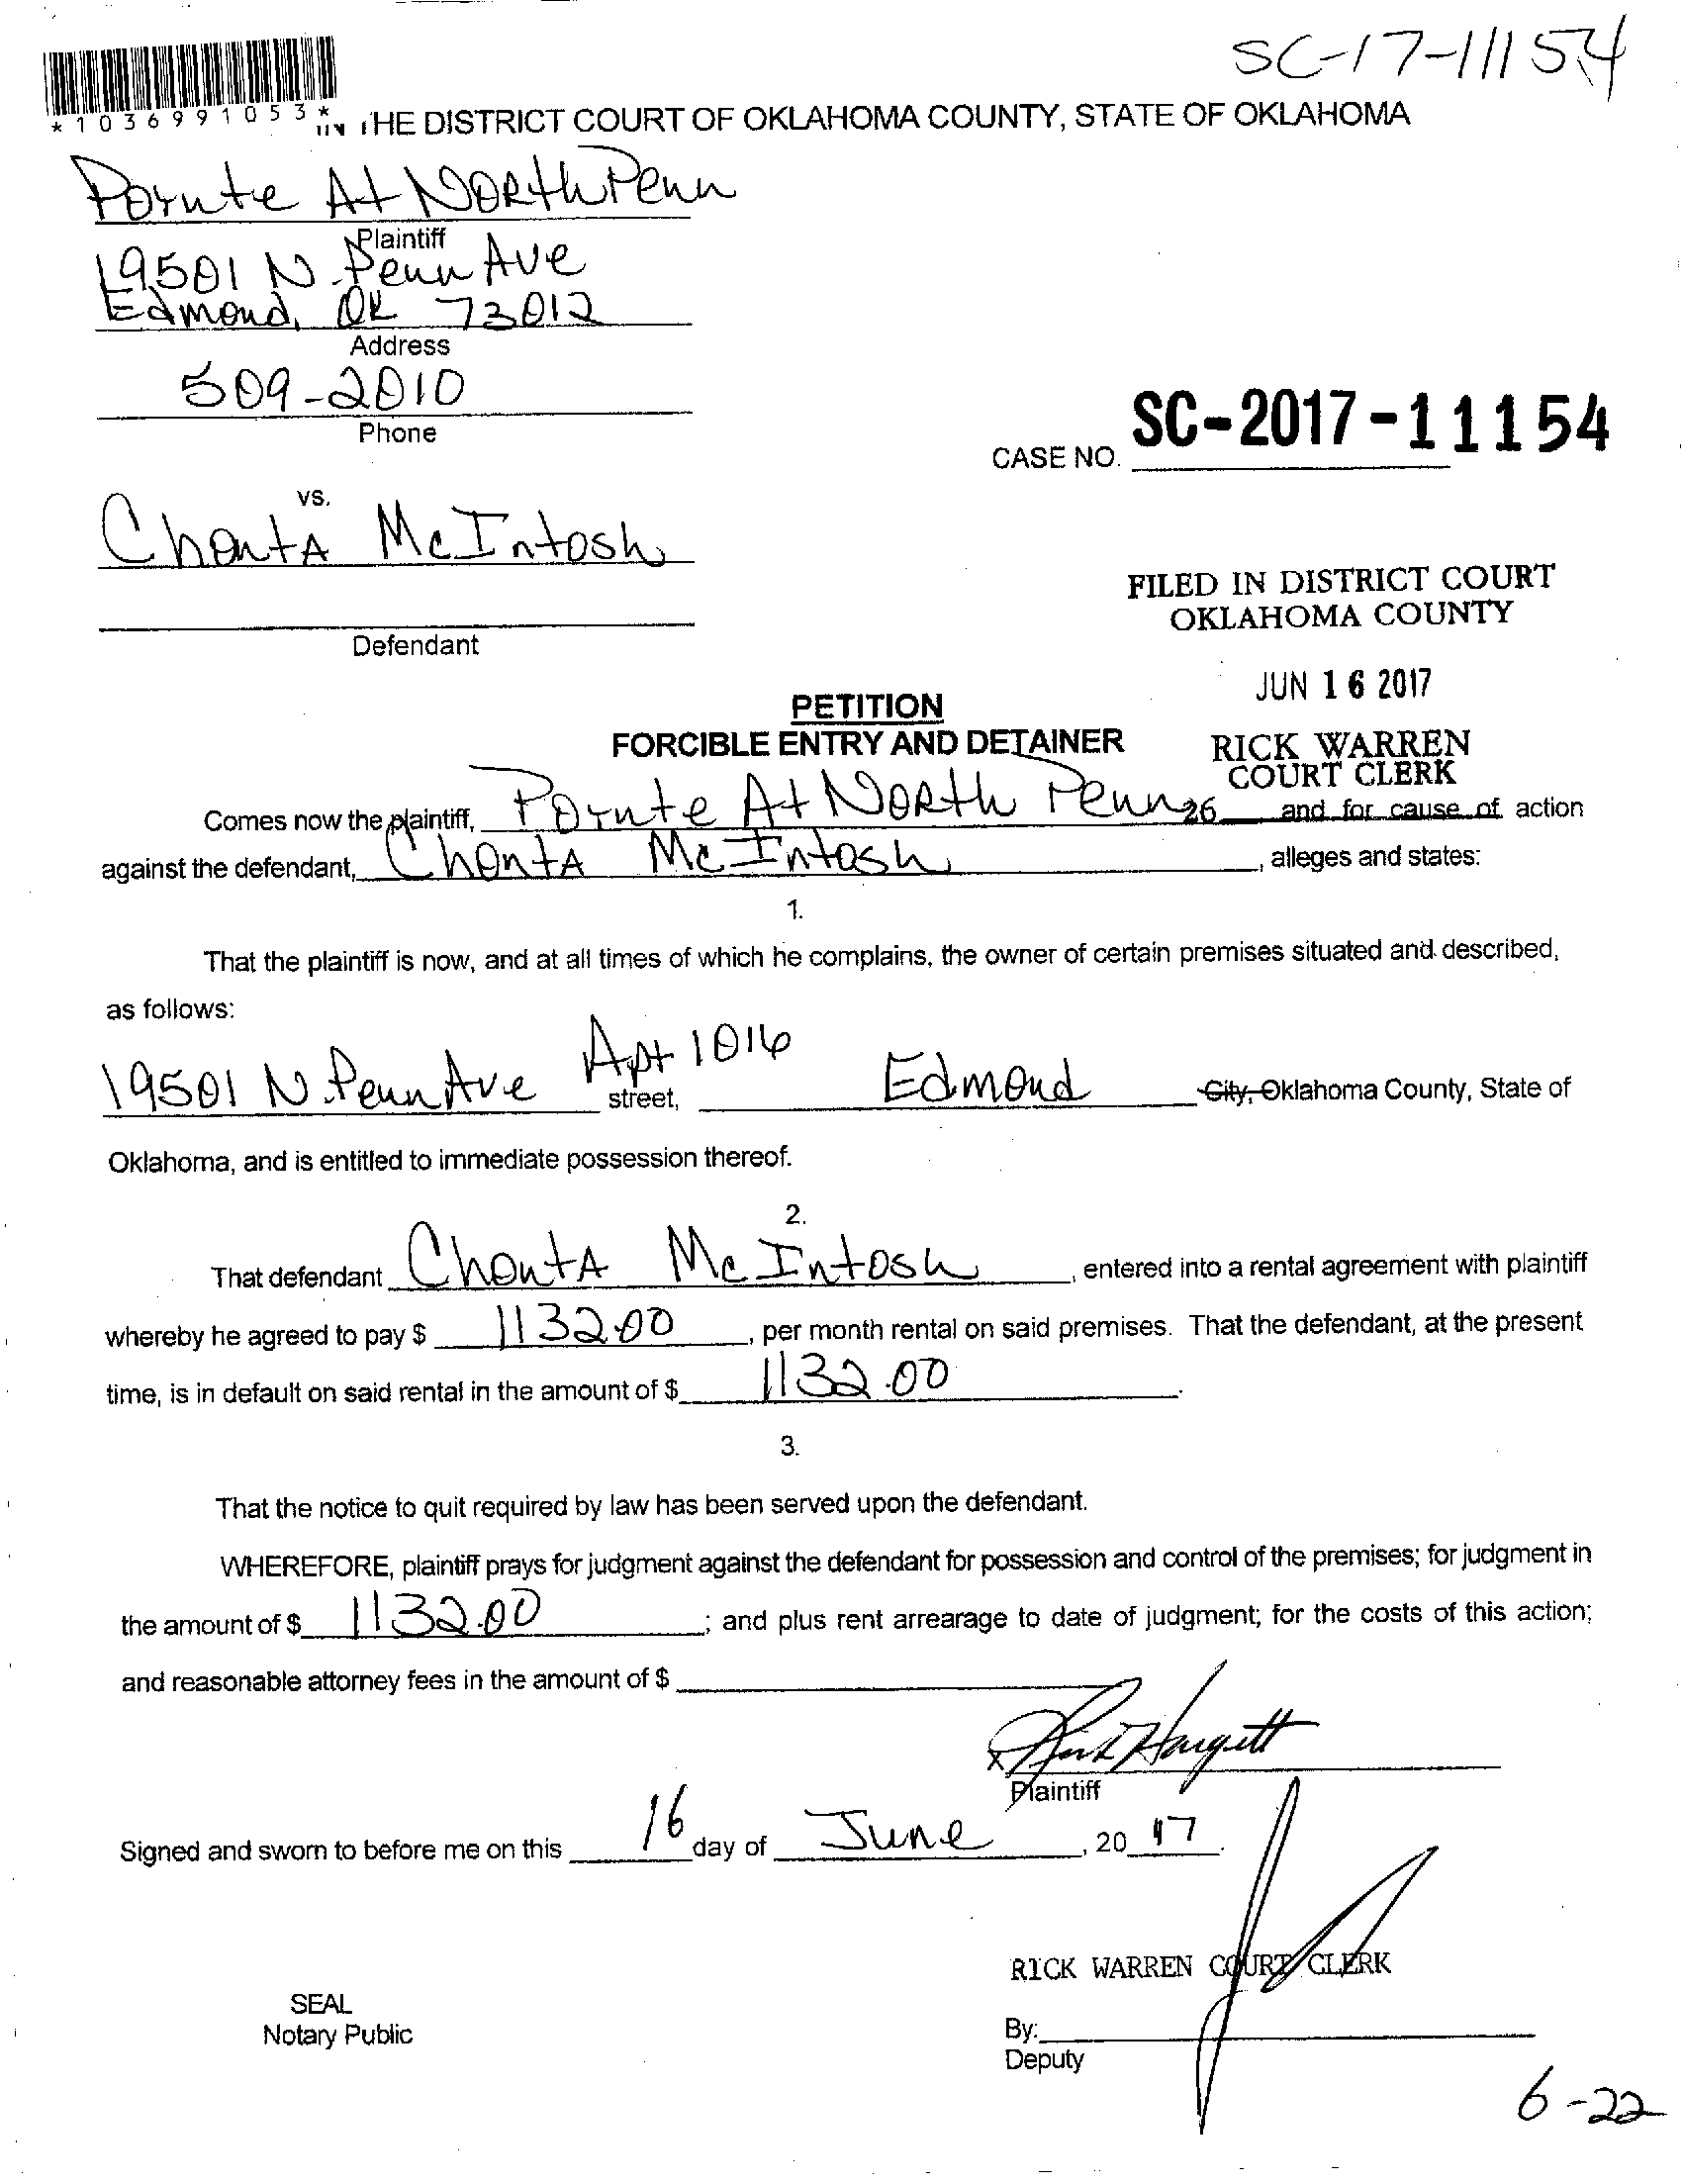 SC-17-11154
*1036991053*
IN THE DISTRICT COURT OF OKLAHOMA COUNTY, STATE OF OKLAHOMA
Pointe At North Penn
Plaintiff
19501 N. Penn Ave
Edmond, OK 73012
Address
509-2010
Phone
CASE NO. SC-2017-11154
vs.
Chonta McIntosh
Defendant
FILED IN DISTRICT COURT
OKLAHOMA COUNTY
JUN 16 2017
RICK WARREN
COURT CLERK
26
PETITION
FORCIBLE ENTRY AND DETAINER
Comes now the plaintiff, Pointe At North Penn and for cause of action
against the defendant, Chonta McIntosh, alleges and states:
1.
That the plaintiff is now, and at all times of which he complains, the owner of certain premises situated and described,
as follows:
19501 N. Penn Ave Apt 1016 street, Edmond City, Oklahoma County, State of
Oklahoma, and is entitled to immediate possession thereof.
2.
That defendant Chonta McIntosh, entered into a rental agreement with plaintiff
whereby he agreed to pay $ 1132.00, per month rental on said premises. That the defendant, at the present
time, is in default on said rental in the amount of $ 1132.00.
3.
That the notice to quit required by law has been served upon the defendant.
WHEREFORE, plaintiff prays for judgment against the defendant for possession and control of the premises; for judgment in
the amount of $ 1132.00; and plus rent arrearage to date of judgment; for the costs of this action;
and reasonable attorney fees in the amount of $
x Hargett
Plaintiff
Signed and sworn to before me on this 16 day of June, 2017.
RICK WARREN COURT CLERK
SEAL
Notary Public
By:
Deputy
6-22